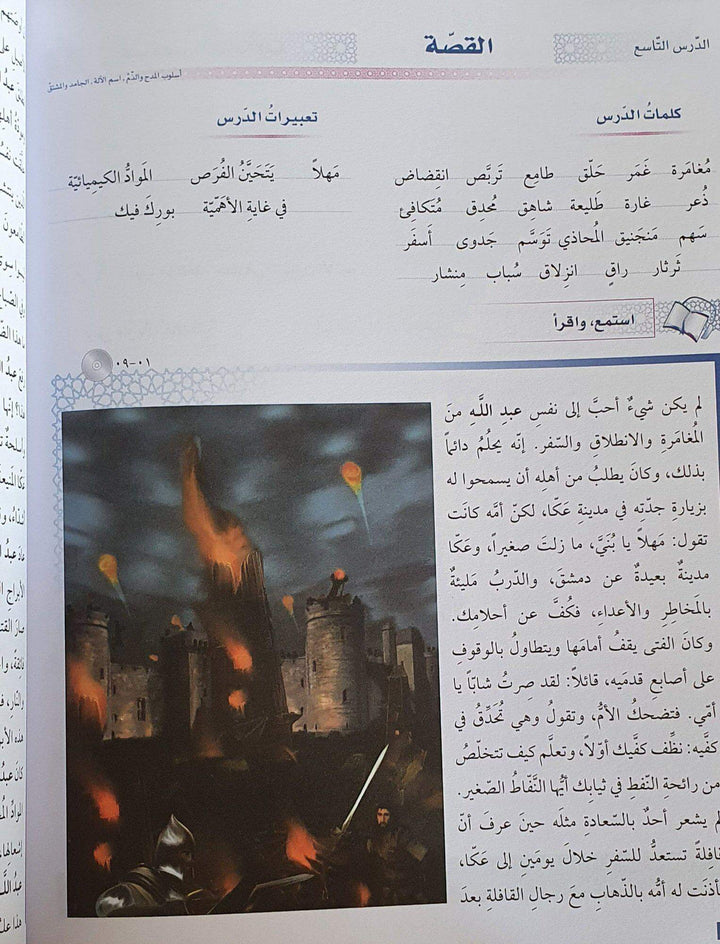 الدّرس التّاسع
القصّة
أسلوب المدح والذّمّ، اسم الآلة، الجامد والمشتقّ
كلماتُ الدّرس
مُغامَرة غَمَر حَلَّق طامِع تَربَّص انقِضاض
ذُعر غارة طَليعة شاهق مُحدِق مُتكافئ
سَهم مَنجَنيق المُحاذي تَوَسَّم جَدوى أَسفَر
ثَرثار راقٍ انزِلاق سُباب مِنشار
تعبيراتُ الدّرس
مَهلاً يَتَحَيَّنُ الفُرَص المَوادُّ الكيميائيّة
في غايةِ الأهَمّيّة بورِكَ فيك
استمع، واقرأ
٠١-٠٩
لم يكن شيءٌ أحبَّ إلى نفسِ عبدِ اللَّـهِ منَ
المُغامَرةِ والانطلاقِ والسّفر. إنّه يحلُمُ دائماً
بذلك، وكانَ يطلبُ من أهلِه أن يسمحوا له
بزيارةِ جدّتِه في مدينةِ عَكّا، لكنّ أمَّه كانَت
تقول: مَهلاً يا بُنَيَّ، ما زلتَ صغيراً، وعَكّا
مدينةٌ بعيدةٌ عن دمشقَ، والدّربُ مَليئةٌ
بالمَخاطِرِ والأعداءِ، فكُفَّ عن أحلامِك.
وكانَ الفتى يقفُ أمامَها ويتطاولُ بالوقوفِ
على أصابعِ قدمَيه، قائلاً: لقد صِرتُ شابّاً يا
أمّي. فتضحكُ الأمُّ، وتقولُ وهي تُحَدِّقُ في
كفَّيه: نظِّف كفَّيك أوّلاً، وتعلَّم كيف تتخلّصُ
من رائحةِ النّفطِ في ثيابِك أيُّها النَّفّاطُ الصّغير.
يشعر أحدٌ بالسّعادةِ مثلَه حينَ عرفَ أنّ
تستعدُّ للسّفرِ خلالَ يومَين إلى عَكّا،
له أمُّه بالذّهابِ معَ رجالِ القافلةِ بعدَ